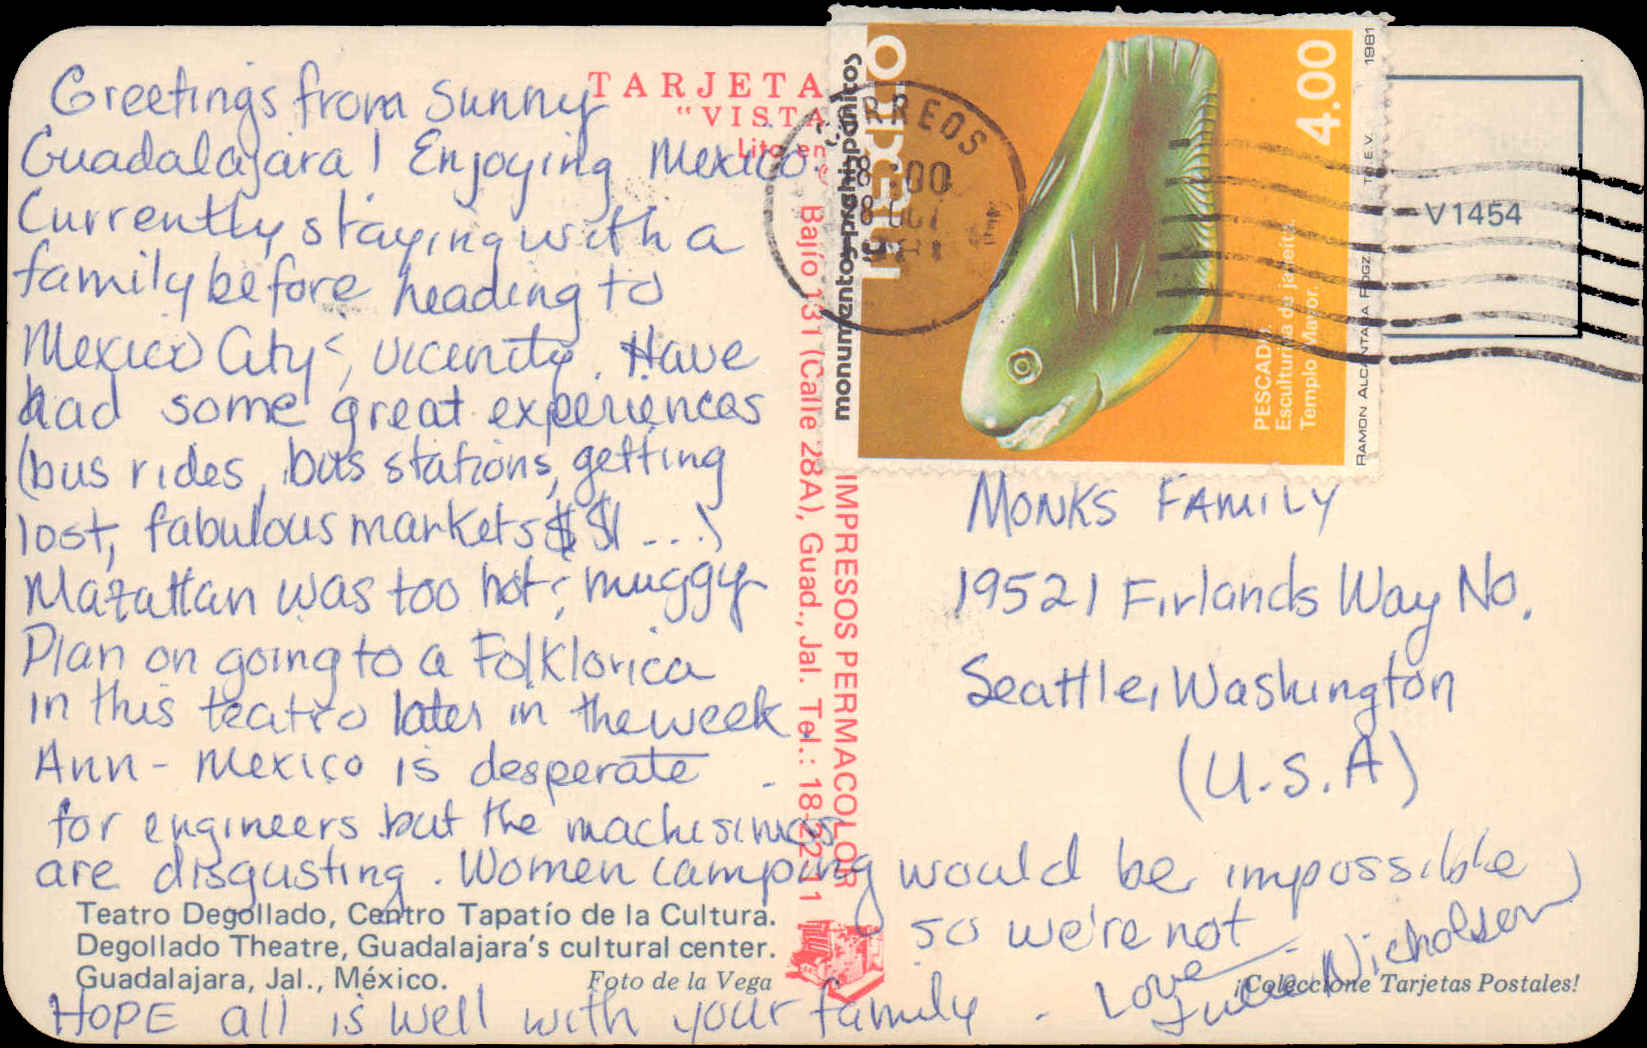 Greetings from sunny
Guadalajara! Enjoying Mexico.
Currently staying with a
family before heading to
Mexico City & vicenity. Have
had some great experiences
(bus rides, bus stations, getting
lost, fabulous markets $$! ...)
Mazatlan was too hot & muggy
Plan on going to a Folklorica
in this teatro later in the week.
Ann - Mexico is desperate
for engineers but the machisimos
are disgusting. Women camping would be impossible
so we're not
HOPE all is well with your family.
Love
Julie Nicholsen
TARJETA
"VISTA
Lito en
Bajío 131 (Calle 28A), Guad., Jal. Tel.: 18-22-11
IMPRESOS PERMACOLOR
monumentos prehispánicos
CORREOS
4.00
1981
T.I.E.V.
RAMON ALCANTARA RDGZ.
PESCADO.
Escultura de jadeita.
Templo Mayor.
V1454
MONKS FAMILY
19521 Firlands Way No.
Seattle, Washington
(U.S.A)
Teatro Degollado, Centro Tapatío de la Cultura.
Degollado Theatre, Guadalajara's cultural center.
Guadalajara, Jal., México.
Foto de la Vega
¡Coleccione Tarjetas Postales!